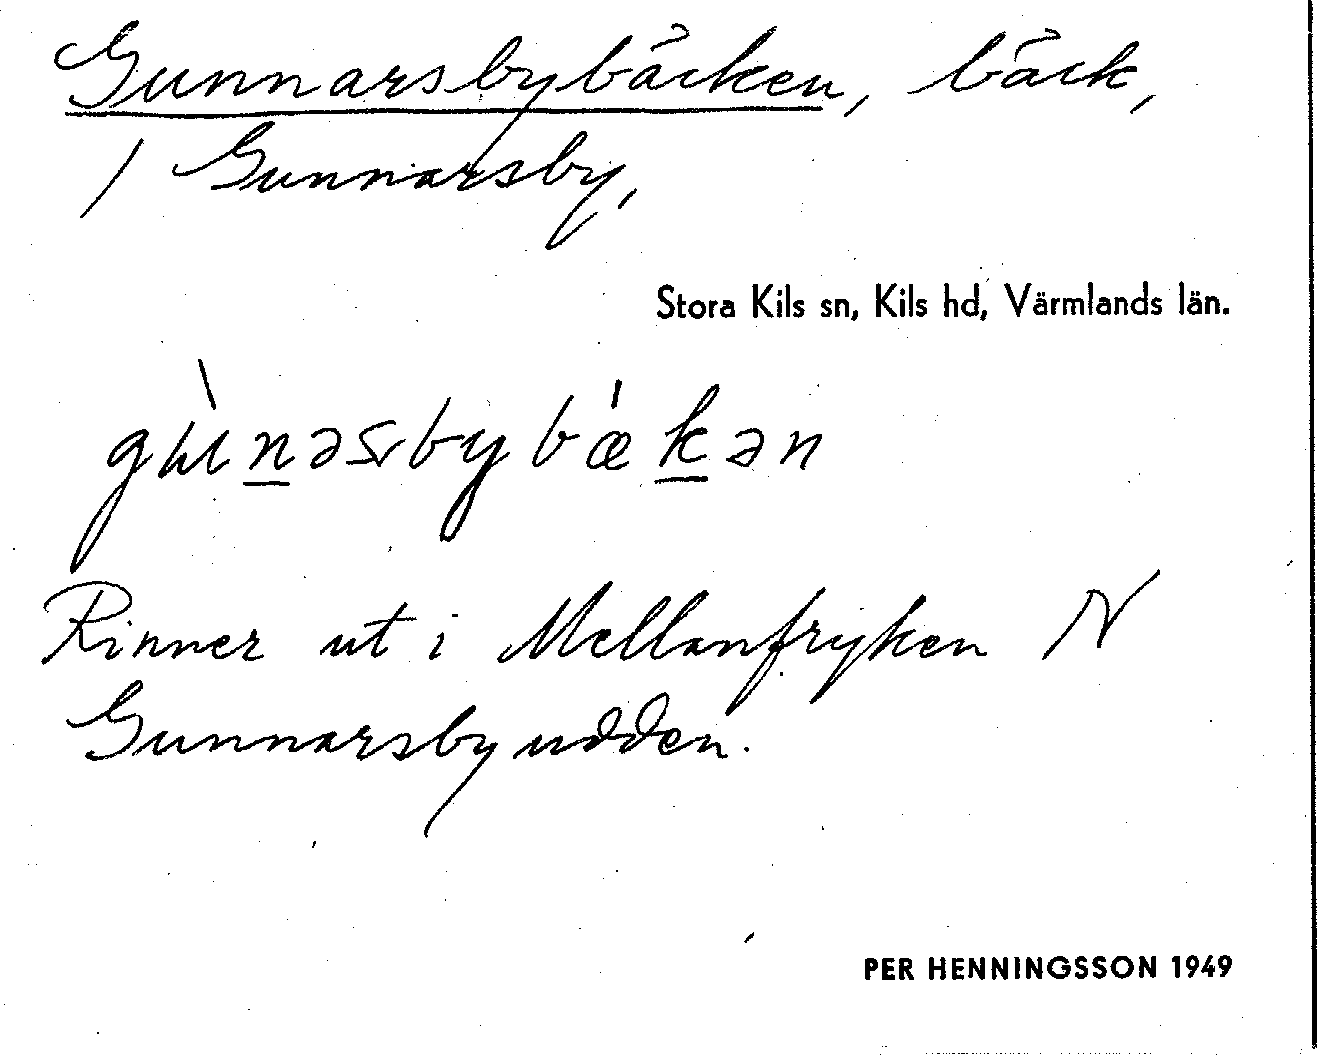 Gunnarsbybäcken, bäck,
/ Gunnarsby,
Stora Kils sn, Kils hd, Värmlands län.
Rinner ut i Mellanfryken N
Gunnarsbyudden.
PER HENNINGSSON 1949